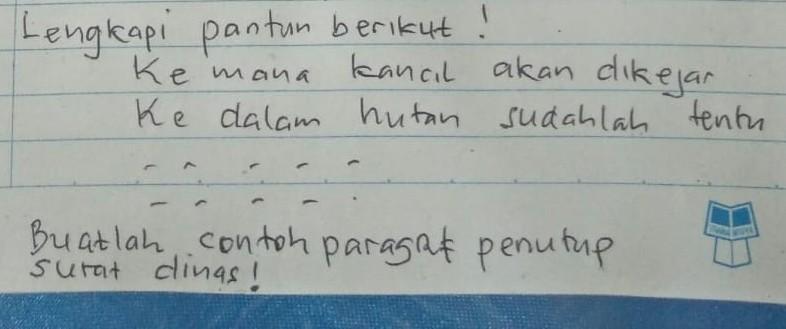 Lengkapi pantun berikut !
Ke mana kancil akan dikejar
Ke dalam hutan sudahlah tentu
- - - - -
- - - - .
Buatlah contoh paragraf penutup
surat dinas!